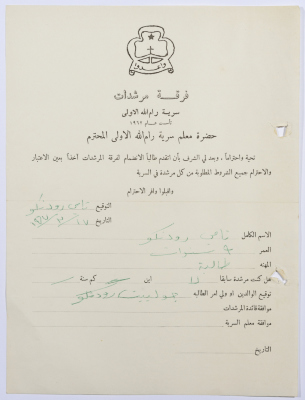 واعدوا
فرقة مرشدات
سرية رام الله الاولى
تأست عام ١٩٦٢
حضرة معلم سرية رام الله الاولى المحترم
تحية واحتراماً، وجد لي الشرف بأن اتقدم طالباً الانضمام لفرقة المرشدات آخذاً بعين الاعتبار
والاحترام جميع الشروط المطلوبة من كل مرشدة في السرية
واقبلوا وافر الاحترام
التوقيع
التاريخ
الاسم الكامل
العمر ٩ سنوات
المهنه طالبة
هل كنت مرشدة سابقا لا اين كم سنة
توقيع الوالدين او ولي امر الطالبه
موافقة قائدة المرشدات
موافقة معلم السرية
التاريخ